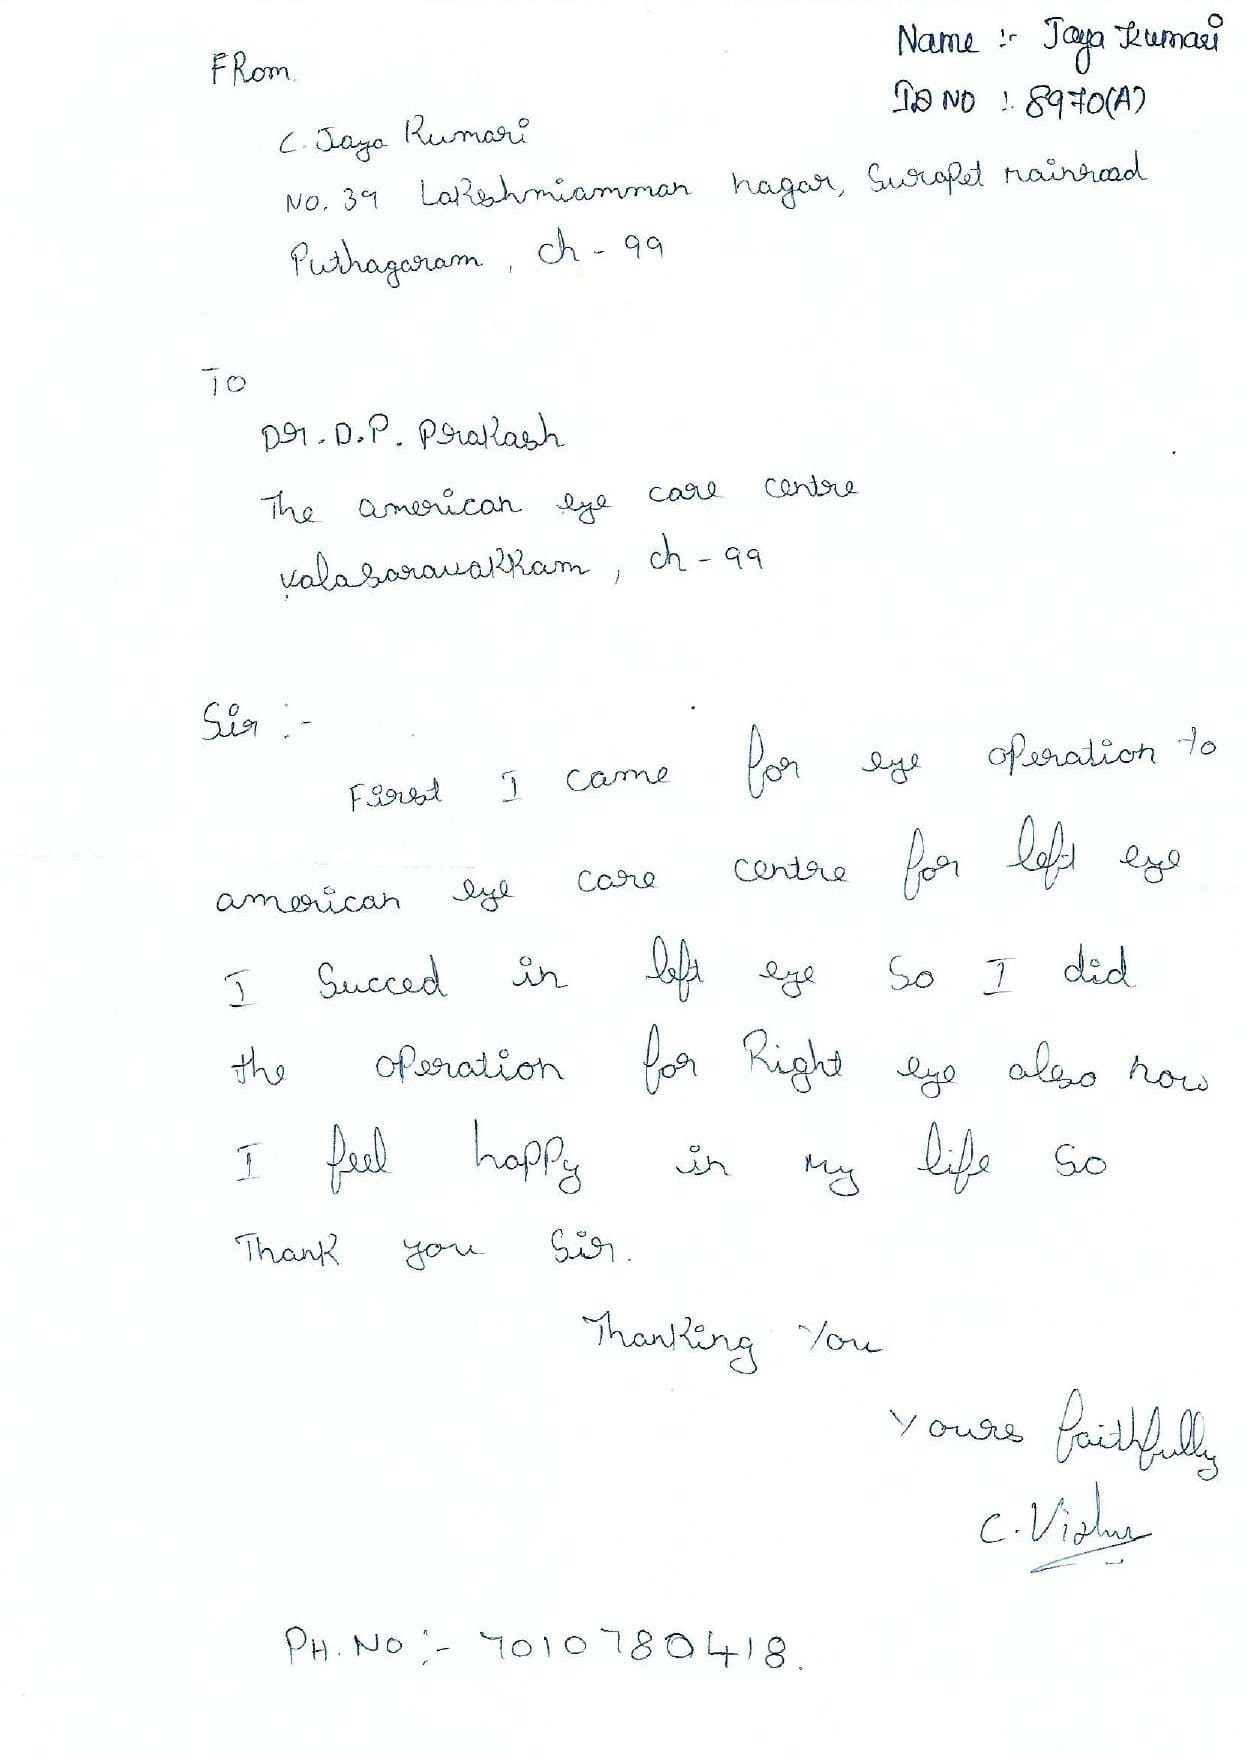 Name :- Jaya Kumari
ID NO : 8970(A)
FRom
C. Jaya Kumari
NO. 39 Lakshmiamman nagar, Surapet mainroad
Puthagaram, ch - 99
To
Dr. D.P. Prakash
The american eye care centre
valasaravakkam, ch - 99
Sir :-
First I came for eye operation to
american eye care centre for left eye
I Succed in left eye So I did
the operation for Right eye also now
I feel happy in my life So
Thank you Sir.
Thanking You
Yours faithfully
C.
PH. NO :- 7010780418.